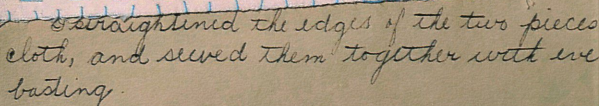 I straightened the edges of the two pieces
cloth, and sewed them together with eve
basting.